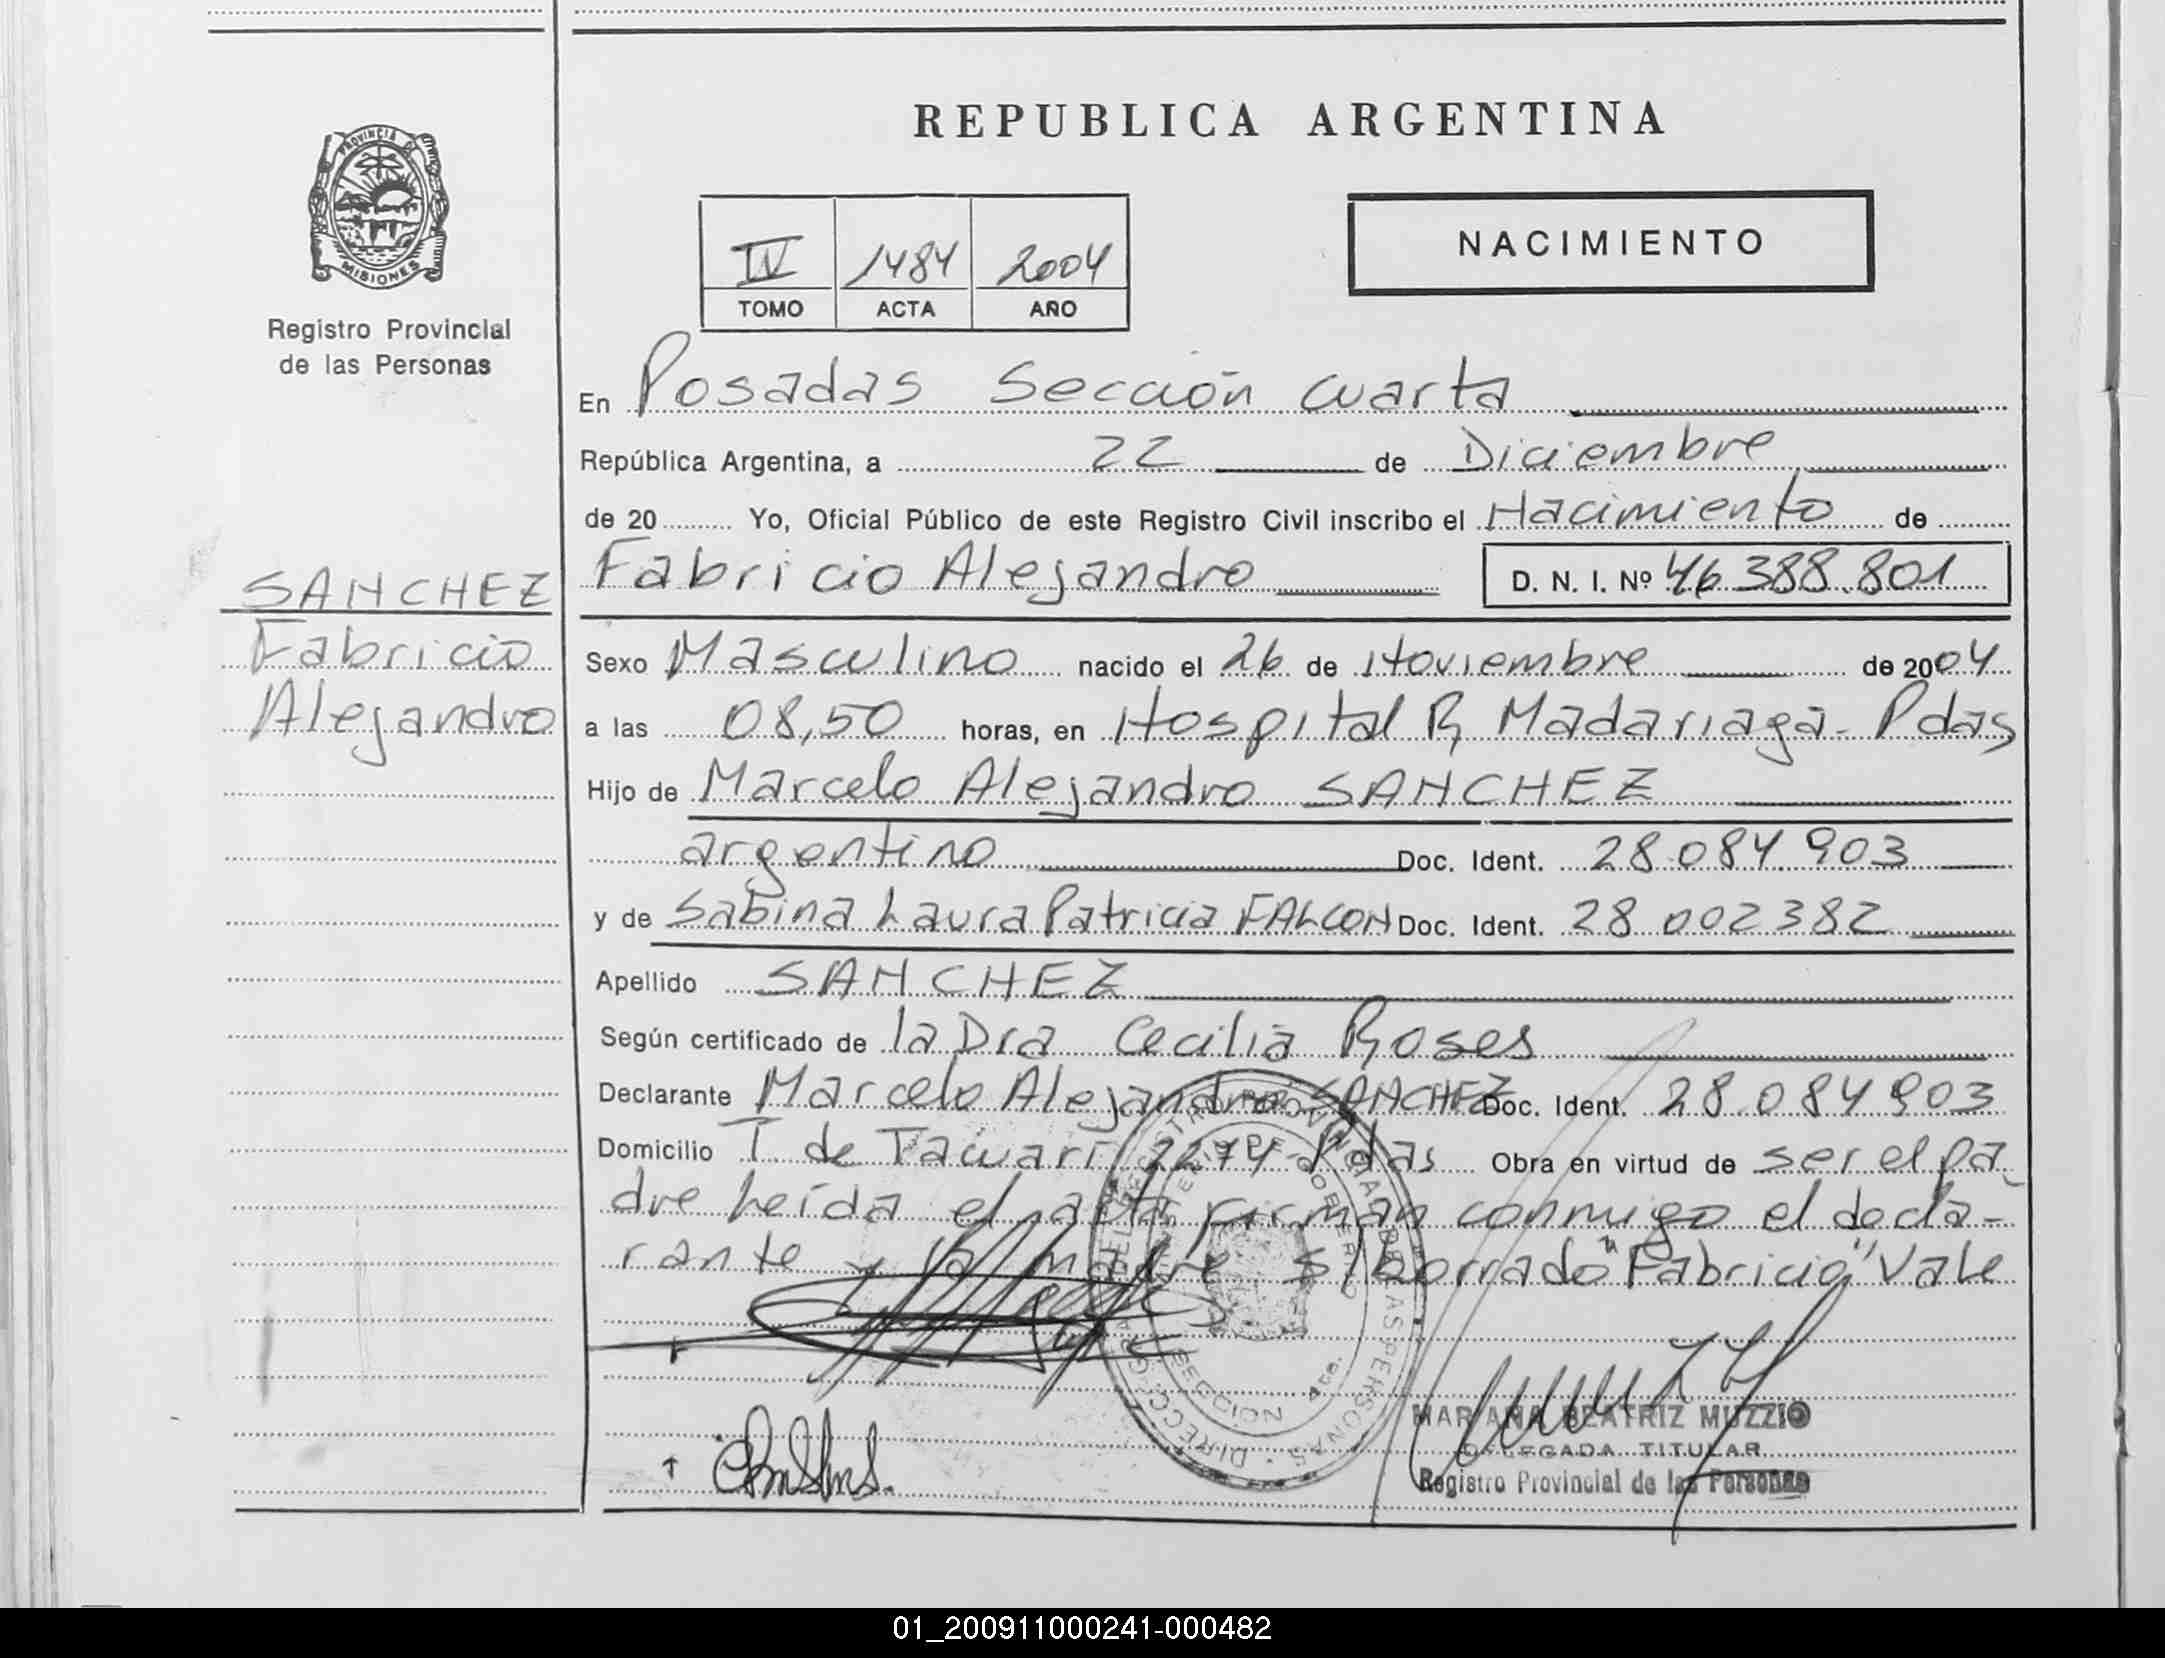 REPUBLICA ARGENTINA
PROVINCIA DE
MISIONES
Registro Provincial
de las Personas
IV 1484 2004
TOMO ACTA AÑO
NACIMIENTO
En Posadas Sección cuarta
República Argentina, a 22 de Diciembre
de 20 Yo, Oficial Público de este Registro Civil inscribo el Nacimiento de
Fabricio Alejandro D. N. I. Nº 46.388.801
SANCHEZ
Fabricio
Alejandro
Sexo Masculino nacido el 26 de Noviembre de 2004
a las 08,50 horas, en Hospital R Madariaga - Pdas
Hijo de Marcelo Alejandro SANCHEZ
argentino Doc. Ident. 28.084.903
y de Sabina Laura Patricia FALCON Doc. Ident. 28 002382
Apellido SANCHEZ
Según certificado de la Dra Cecilia Roses
Declarante Marcelo Alejandro SANCHEZ Doc. Ident. 28.084903
Domicilio T. de Tacuari 2274 Pdas Obra en virtud de ser el pa
dre Leída el acta firman conmigo el decla-
rante y la madre s/borrado "Fabricio" Vale
SECCION 4ta.
MARIANA BEATRIZ MUZZIO
DELEGADA TITULAR
Registro Provincial de las Personas
01_200911000241-000482